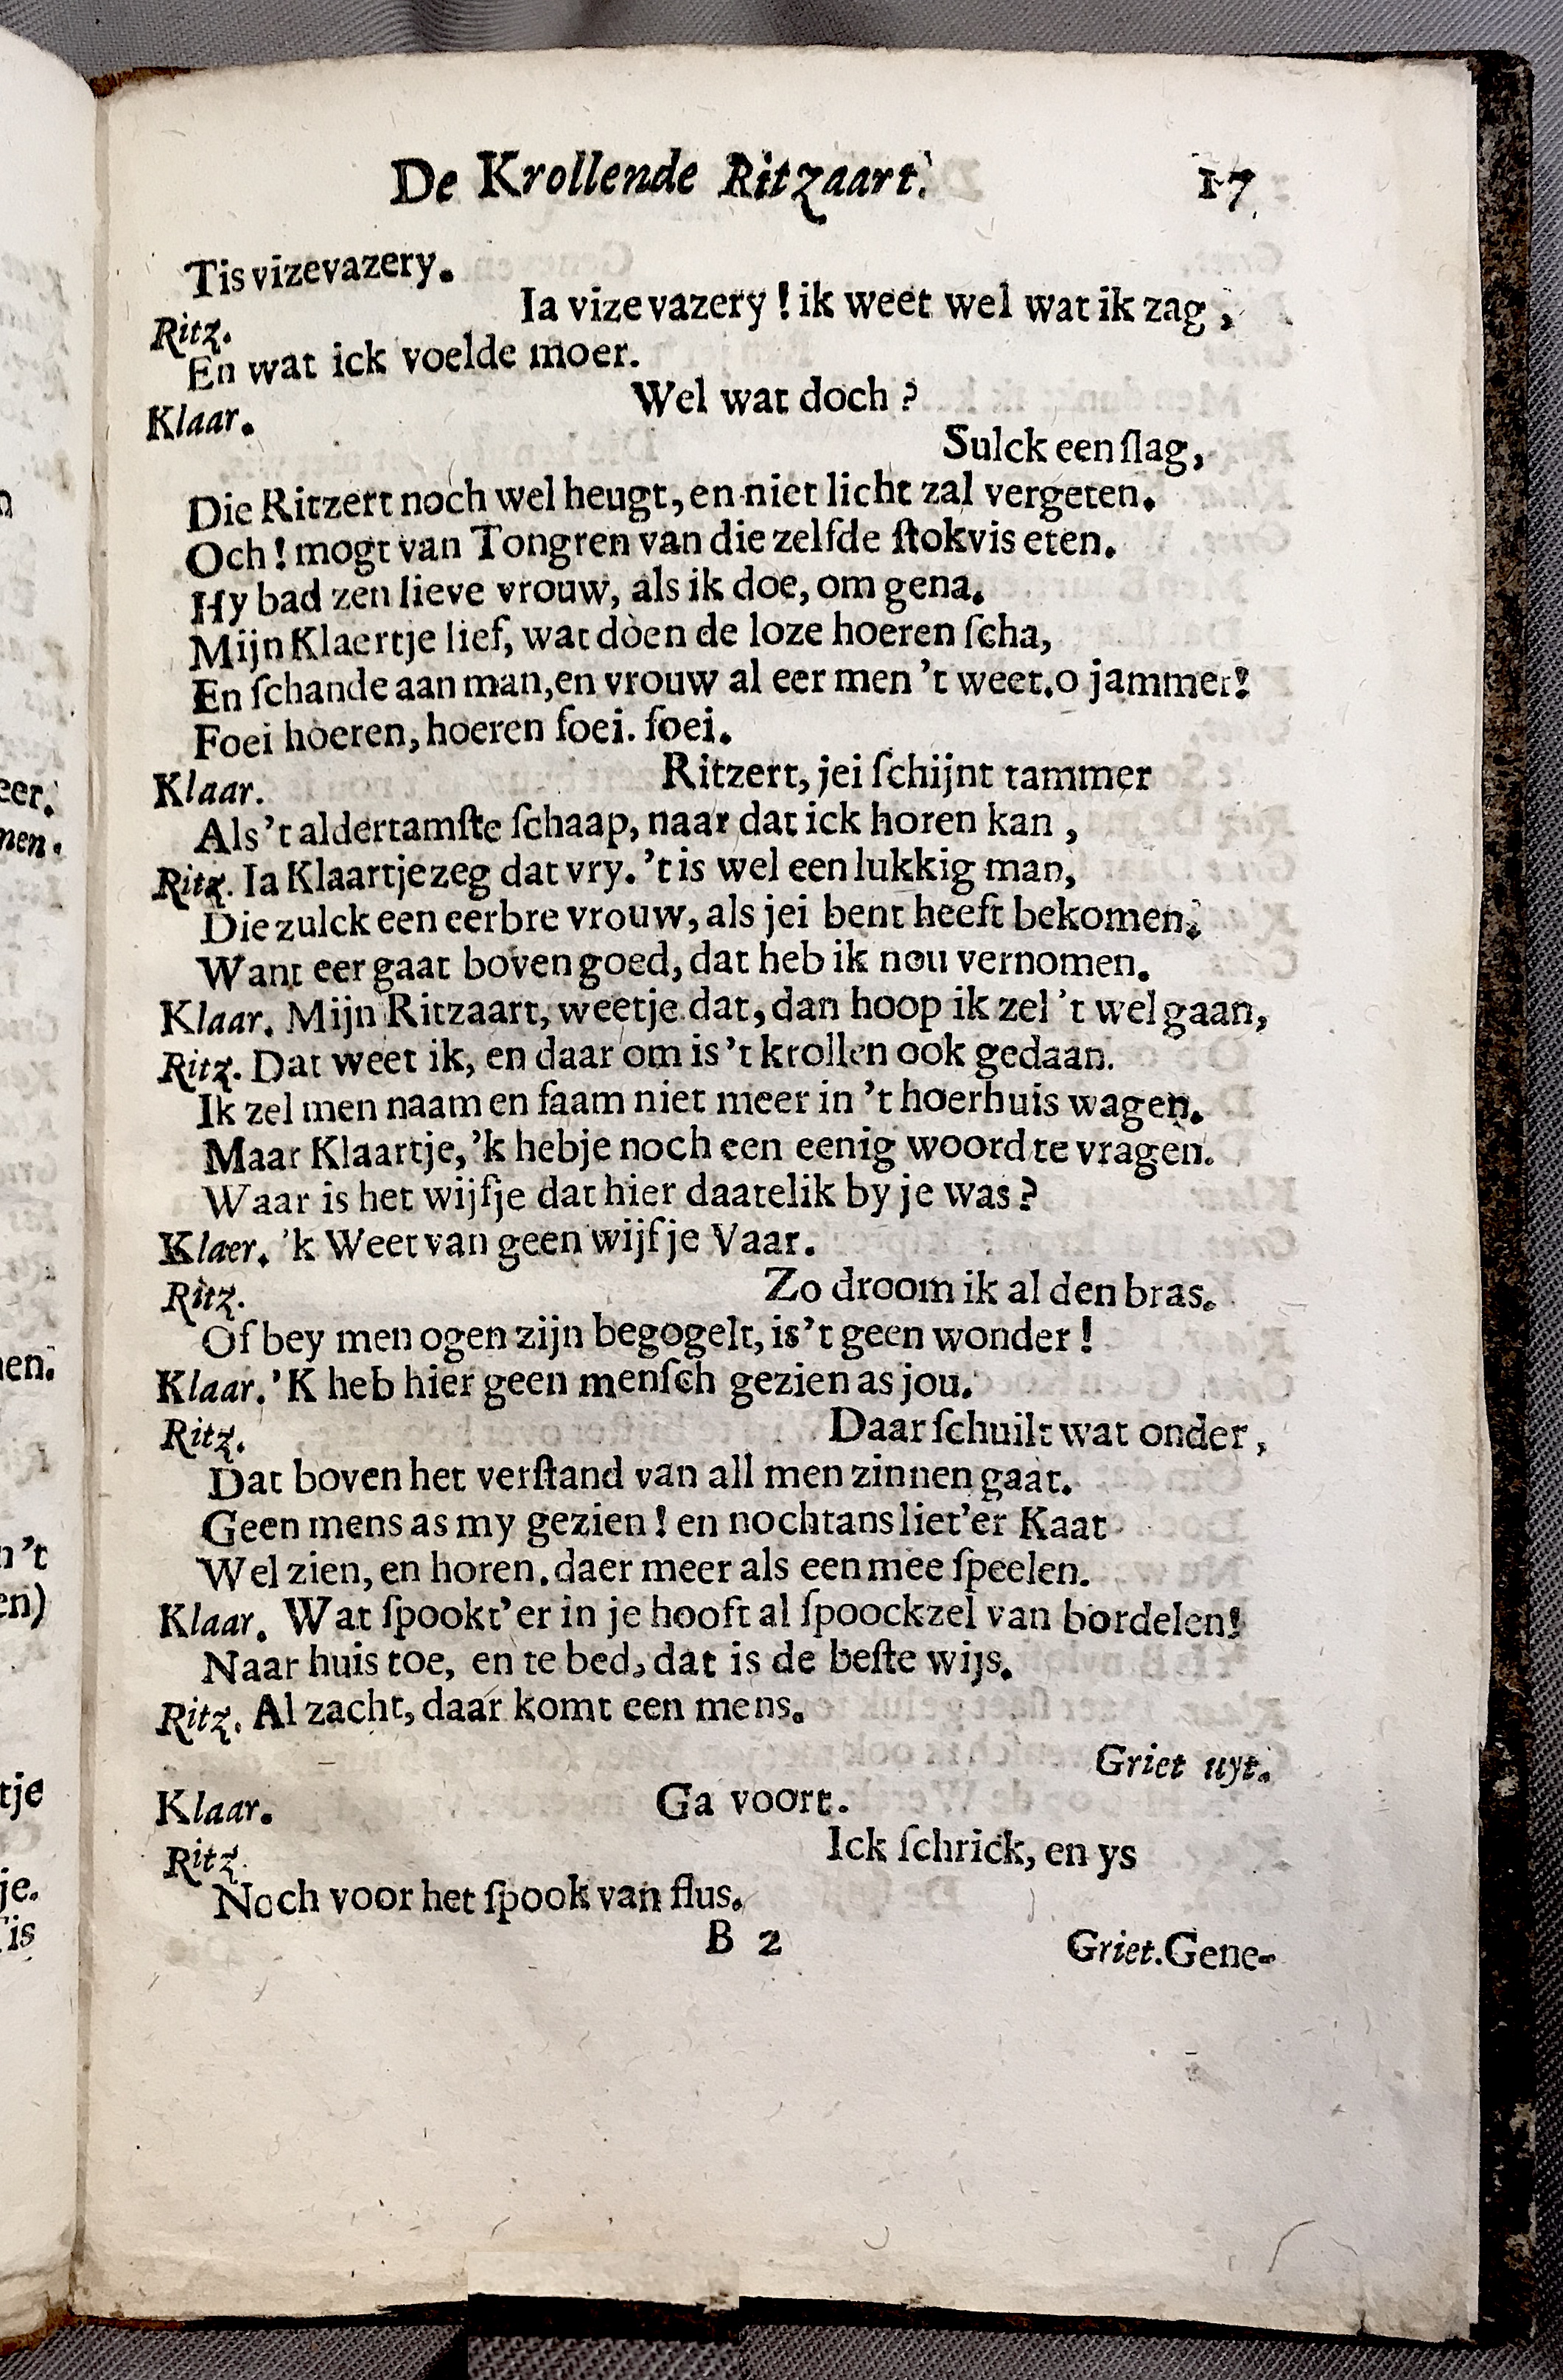 De Krollende Ritzaart.
17
Tis vizevazery.
Ritz. Ia vizevazery! ik weet wel wat ik zag,
En wat ick voelde moer.
Klaar. Wel wat doch?
Sulck een ſlag,
Die Ritzert noch wel heugt, en niet licht zal vergeten.
Och! mogt van Tongren van die zelfde ſtokvis eten.
Hy bad zen lieve vrouw, als ik doe, om gena.
Mijn Klaertje lief, wat doen de loze hoeren ſcha,
En ſchande aan man, en vrouw al eer men 't weet. o jammer!
Foei hoeren, hoeren foei. foei.
Klaar. Ritzert, jei ſchijnt tammer
Als 't aldertamſte ſchaap, naar dat ick horen kan,
Ritz. Ia Klaartje zeg dat vry. 't is wel een lukkig man,
Die zulck een eerbre vrouw, als jei bent heeft bekomen.
Want eer gaat boven goed, dat heb ik nou vernomen.
Klaar. Mijn Ritzaart, weetje dat, dan hoop ik zel 't wel gaan,
Ritz. Dat weet ik, en daar om is 't krollen ook gedaan.
Ik zel men naam en faam niet meer in 't hoerhuis wagen.
Maar Klaartje, 'k heb je noch een eenig woord te vragen.
Waar is het wijfje dat hier daatelik by je was?
Klaer. 'k Weet van geen wijfje Vaar.
Ritz. Zo droom ik al den bras.
Of bey men ogen zijn begogelt, is 't geen wonder!
Klaar. 'K heb hier geen menſch gezien as jou.
Ritz. Daar ſchuilt wat onder,
Dat boven het verſtand van all men zinnen gaat.
Geen mens as my gezien! en nochtans liet'er Kaat
Wel zien, en horen. daer meer als een mee ſpeelen.
Klaar. Wat ſpookt'er in je hooft al ſpoockzel van bordelen!
Naar huis toe, en te bed, dat is de beſte wijs.
Ritz. Al zacht, daar komt een mens.
Griet uyt.
Klaar. Ga voort.
Ritz. Ick ſchrick, en ys
Noch voor het ſpook van flus.
B 2
Griet. Gene-
n
eer.
men.
nen.
n 't
en)
tje
je.
Tis